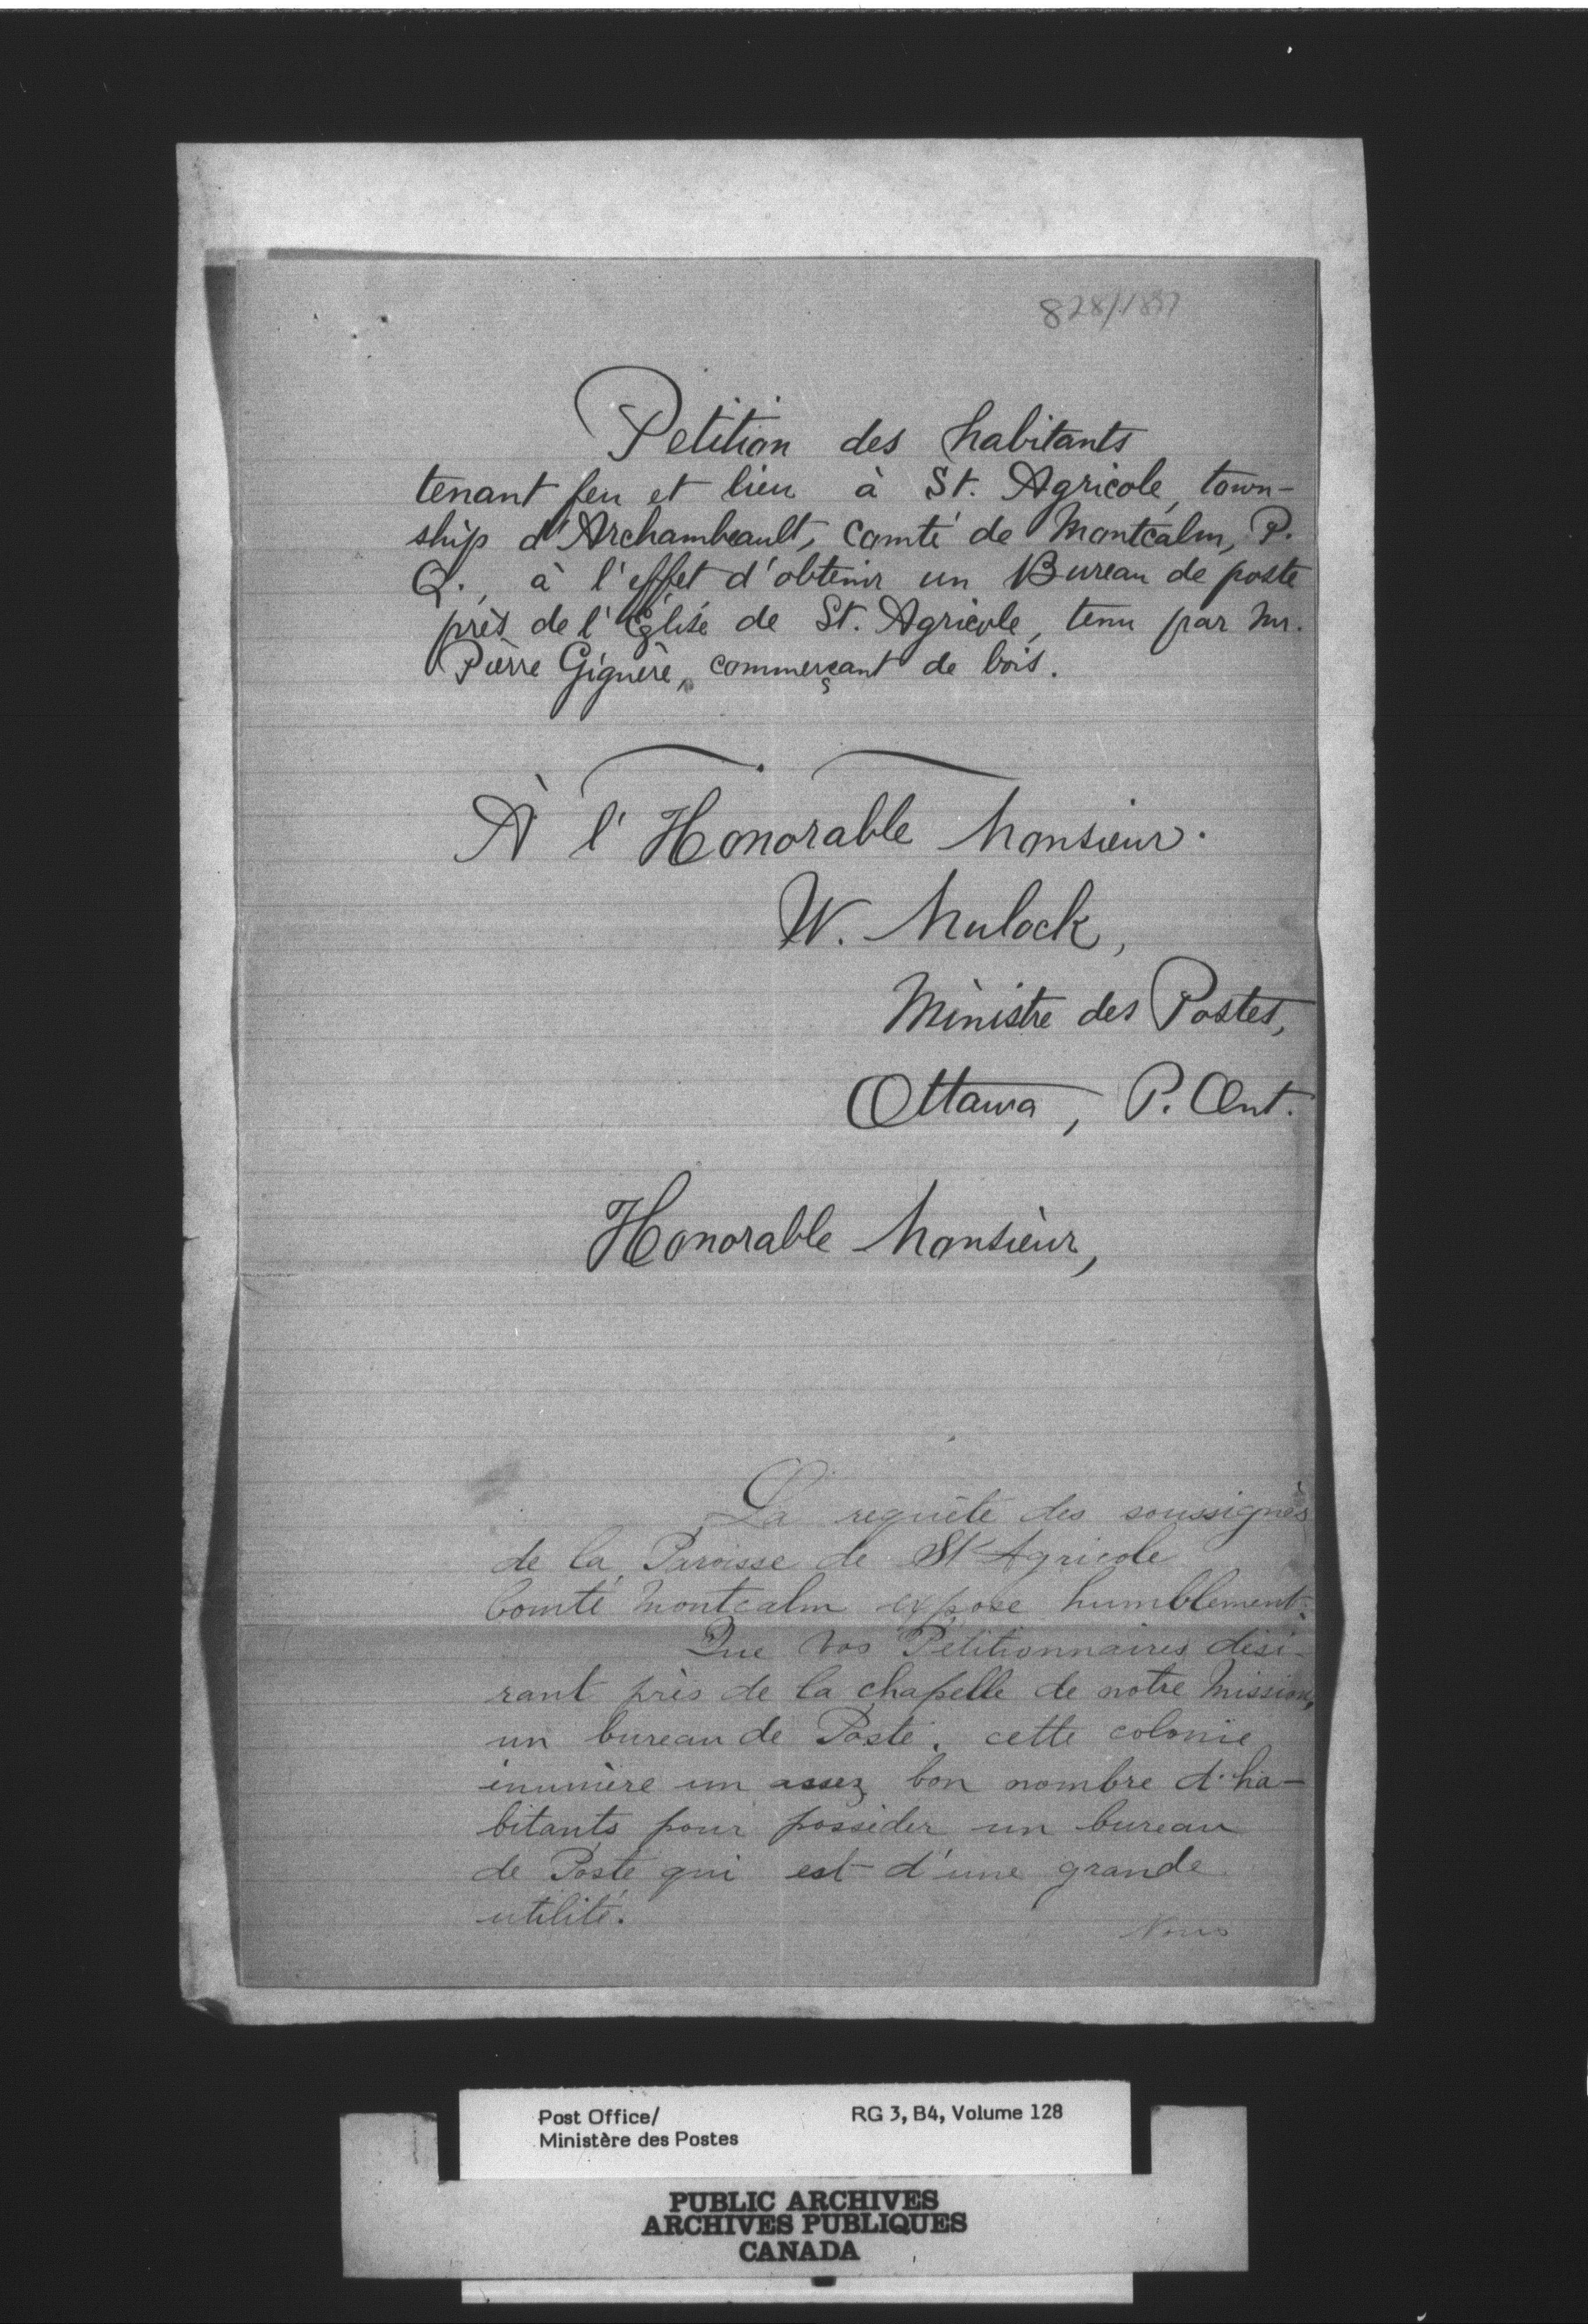 828/1897
Petition des habitants
tenant feu et lieu à St. Agricole, town-
ship d'Archambeault, comté de Montcalm, P.
Q., à l'effet d'obtenir un Bureau de poste
près de l'Église de St. Agricole, tenu par Mr.
Pierre Giguère, commerçant de bois.
À l'Honorable Monsieur.
W. Mulock,
Ministre des Postes,
Ottawa, P. Ont.
Honorable Monsieur,
La requête des soussignés
de la Paroisse de St Agricole
Comté Montcalm expose humblement.
Que vos Pétitionnaires dési-
rant près de la chapelle de notre Mission,
un bureau de Poste. cette colonie
énumère un assez bon nombre d'ha-
bitants pour posséder un bureau
de Poste qui est d'une grande
utilité.
Nous
Post Office/
Ministère des Postes
RG 3, B4, Volume 128
PUBLIC ARCHIVES
ARCHIVES PUBLIQUES
CANADA